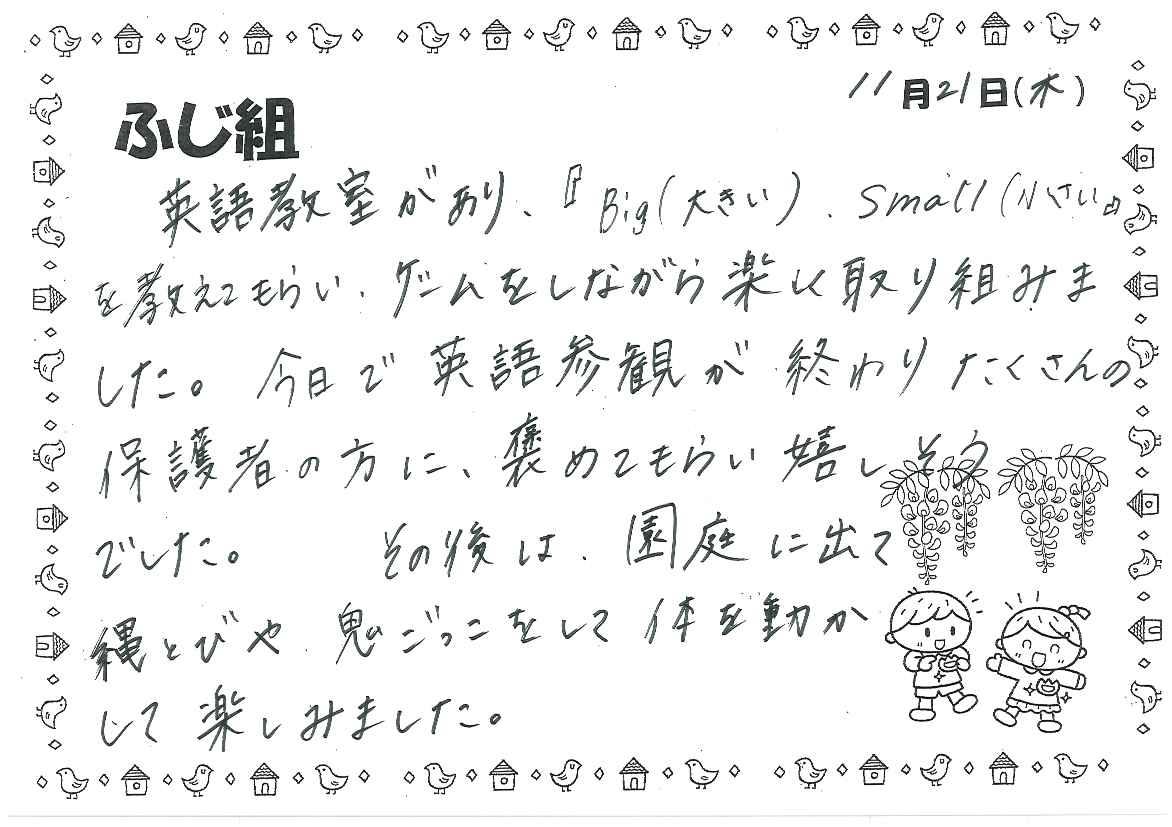 11月21日(木)
ふじ組
英語教室があり、『Big(大きい)、small(小さい』
を教えてもらい、ゲームをしながら楽しく取り組みま
した。今日で英語参観が終わりたくさんの
保護者の方に、褒めてもらい嬉しそう
でした。 その後は、園庭に出て
縄とびや鬼ごっこをして体を動か
して楽しみました。